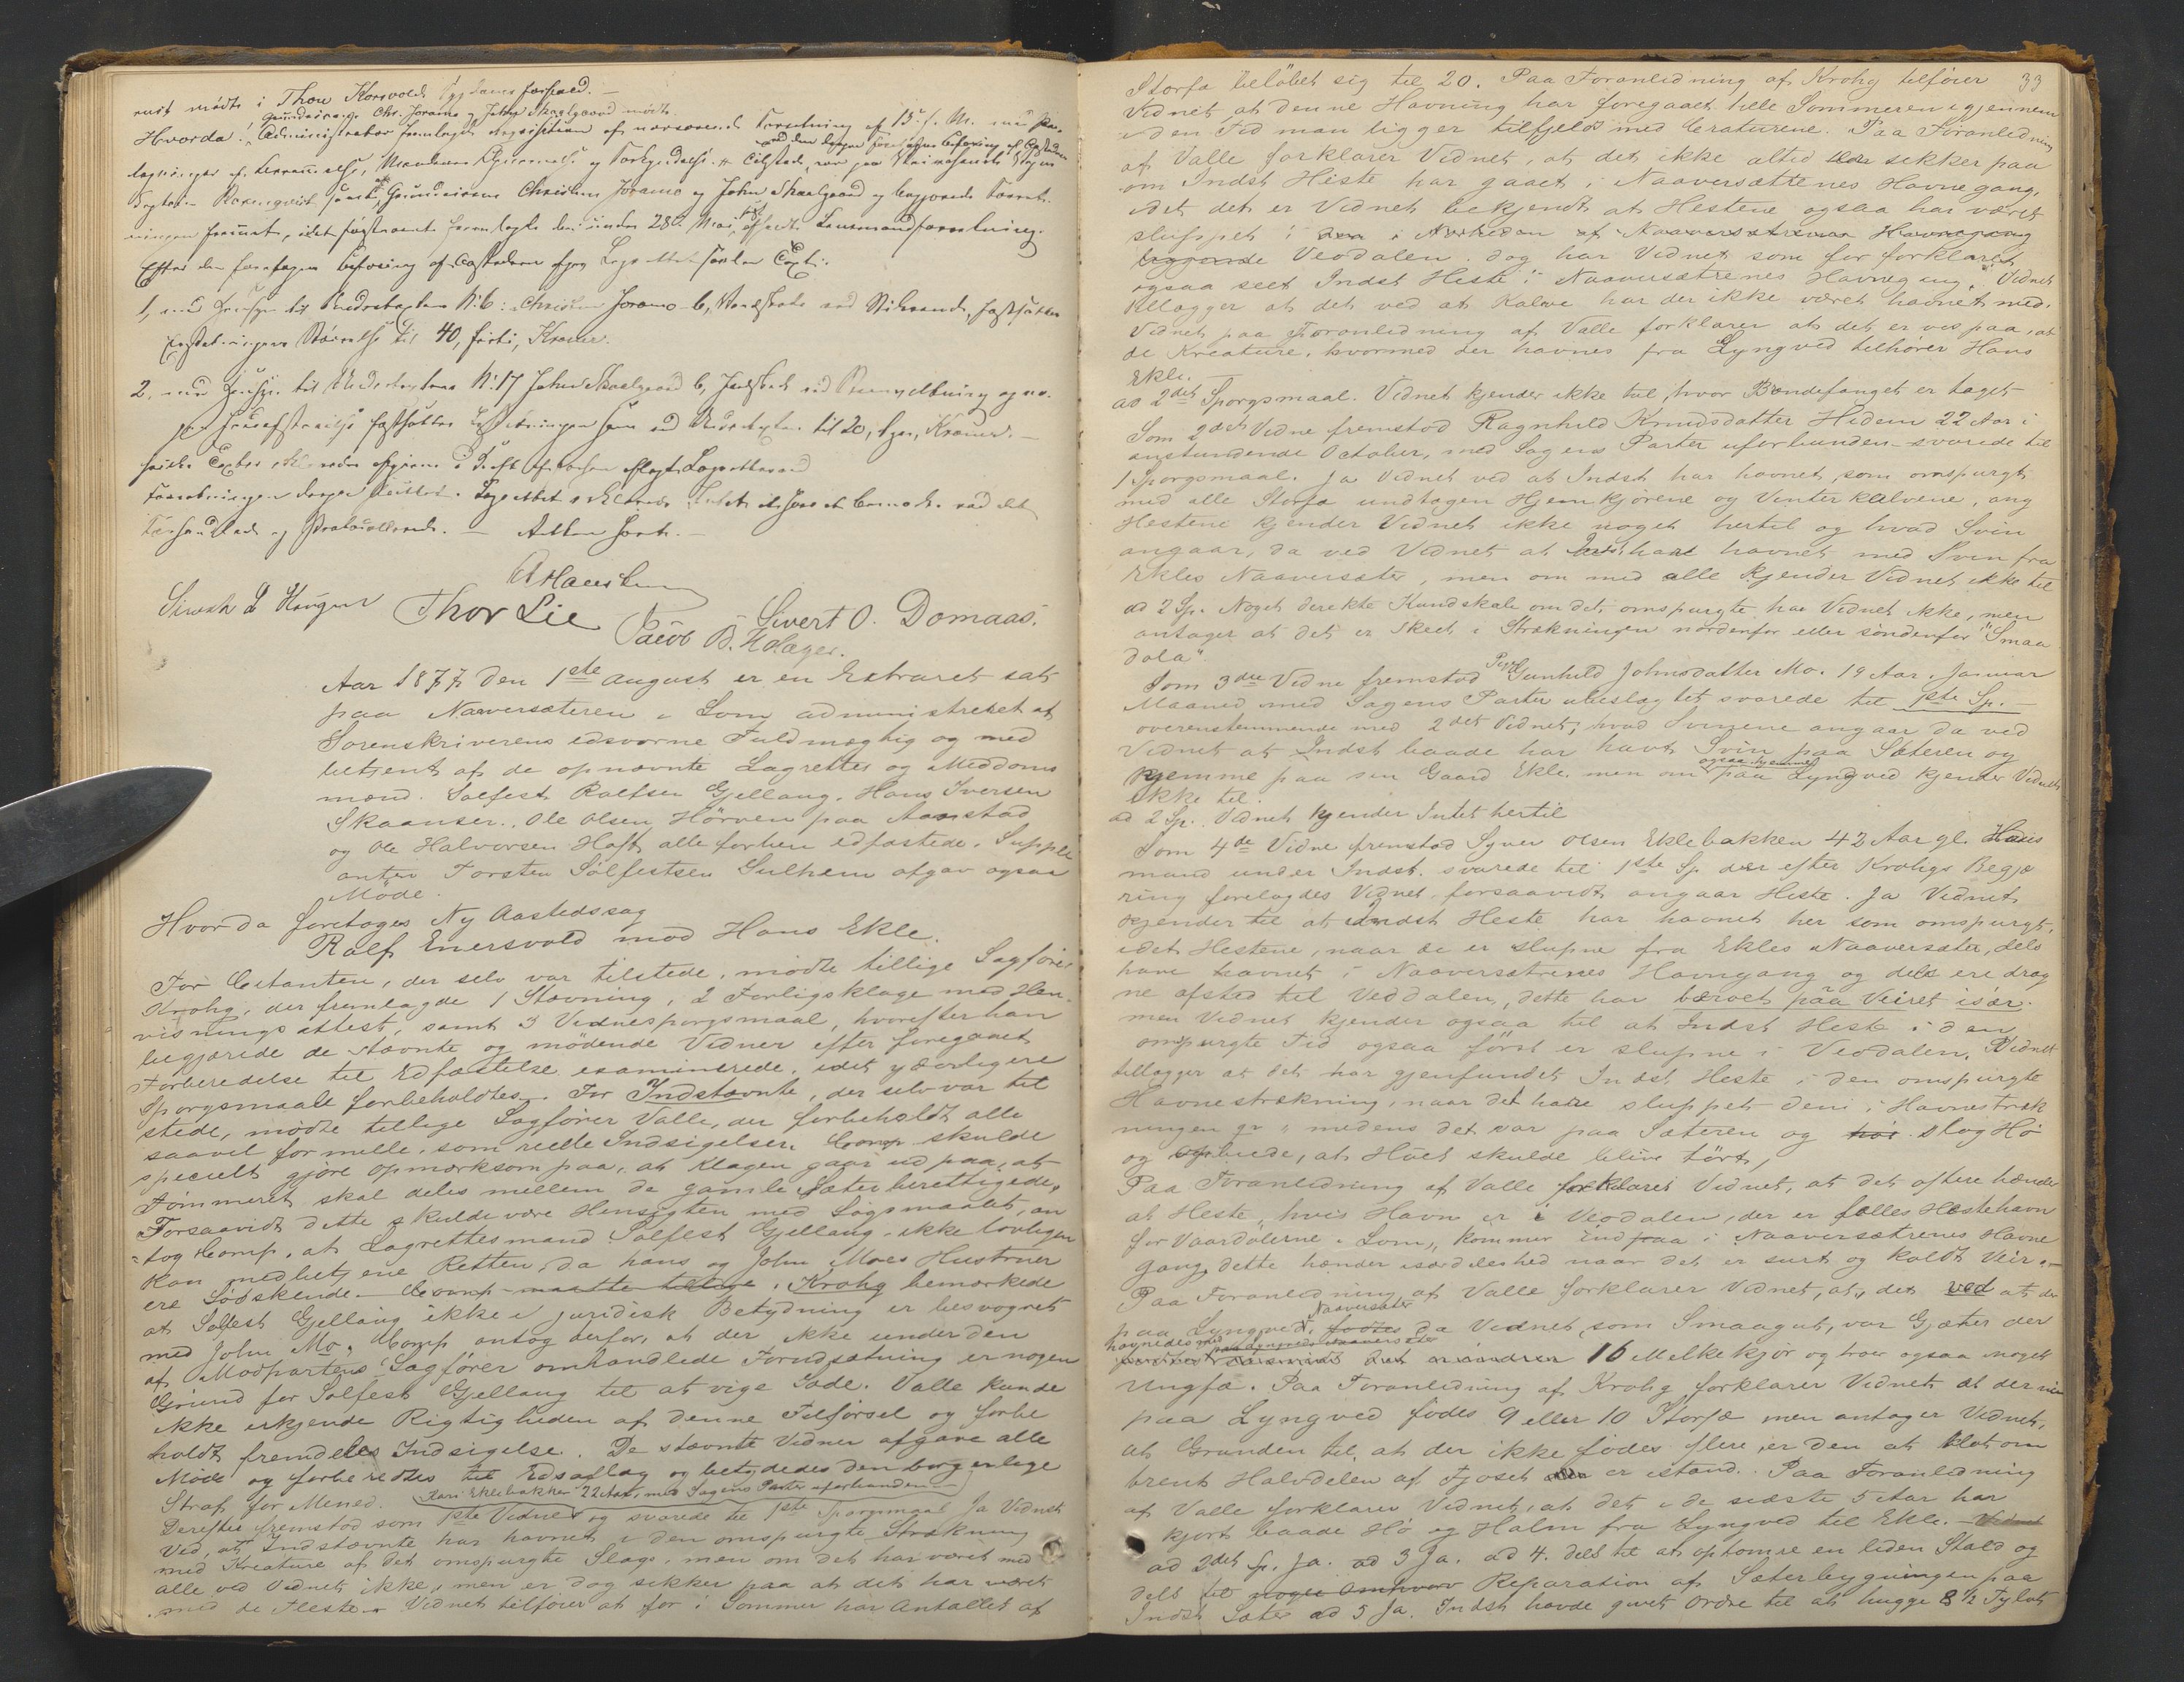 mit mødte i Thore Korsvolds
Grundeierne Chr. Joramo og John Skaalgaard mødte.
Hvorda: Administrator fremlagde Requisition af nærværende Forretning af 15. f. M. med
Christen Joramo og John Skaalgaard
fremlagde den under 28de Mai
Efter den foretagne Befaring af Aastedern
1, med Hensyn til No 6: Christen Joramo
til 40, førti, Kroner.
2, med Hensyn til No 17 John Skaalgaard
til 20, tyve, Kroner. —
Forretningen derpaa sluttet. Lagrettet
Retten hævet. —
A Hansen
Sivert O. Domaas.
Thor Lie
Jacob B. Holager.
Aar 1877 den 1ste August er en Extraret sat
paa Naaversæteren i Lom administreret af
Sorenskriverens edsvorne Fuldmægtig og med
betjent af de opnævnte Lagrettes og Meddoms
mænd. Solfest Rolfsen Gjellaug, Hans Iversen
Skaanser, Ole Olsen Hörven paa Aanstad
og Ole Halvorsen Hoft alle forhen edfæstede. Supple
anten Torsten Sölfestsen Sulhem afgav ogsaa
Møde.
Hvorda foretoges Ny Aastedssag
Rolf Enersvold mod Hans Ekle.
For Citanten, der selv var tilstede, mødte tillige Sagfører
Krohg, der fremlagde 1 Stævning, 2 Forligsklage med Hen
visningsattest, samt 3 Vidnespørgsmaal, hvorefter han
begjærede de stævnte og mødende Vidner efter foregaaet
Forberedelse til Edfæstelse examinerede, idet yderligere
Spørgsmaale forbeholdtes. For Indstævnte, der selv var til
stede, mødte tillige Sagfører Valle, der forbeholdt alle
saavel formelle, som reelle Indsigelser. Comp skulde
specielt gjøre opmærksom paa, at Klagen gaar ud paa, at
Tømmeret skal deles mellem de gamle Sæterberettigede,
Forsaavidt dette skulde være Hensigten med Søgsmaalet, an
tog Comp. at Lagrettesmand Solfest Gjellaug ikke lovligen
kan medbetjene Retten, da hans og John Moes Hustruer
ere Södskende. Comp maatte tillige. Krohg bemærkede
at Solfest Gjellaug ikke i juridisk Betydning er besvogret
med John Mo. Comp antog derfor, at der ikke under den
af Modpartens Sagfører omhandlede Forudsætning er nogen
Grund for Solfest Gjellaug til at vige Sæde. Valle kunde
ikke erkjende Rigtigheden af denne Tilførsel og forbe
holdt fremdeles Indsigelse. De stævnte Vidner afgave alle
Møde og forberedtes til Edsaflæg og betydedes den borgerlige
Straf for Mened.
Kari Eklebakken 22 Aar, med Sagens Parter uforbunden
Derefter fremstod som 1ste Vidne og svarede til 1ste Spørgsmaal Ja Vidnet
ved, at Indstævnte har havnet i den omspurgte Strækning
med Kreature af det omspurgte Slags, men om det har været med
alle ved Vidnet ikke, men er dog sikker paa at det har været
med de Fleste. Vidnet tilføier at før i Sommer har Antallet af
33
Storfæ beløbet sig til 20. Paa Foranledning af Krohg tilføier
Vidnet, at denne Havning har foregaaet hele Sommeren igjennem
i den Tid man ligger tilfjelds med Creaturene. Paa Foranledning
af Valle forklarer Vidnet, at det ikke altid er sikker paa
om Indst Heste har gaaet i Naaversættrenes Havnegang,
idet det er Vidnet bekjendt at Hestene ogsaa har været
sluppet i den i Nærheden af Naaversætrenes Havnegang
liggende Veodalen. dog har Vidnet som før forklaret,
ogsaa seet Indst Heste i Naaversætrenes Havnegang. Vidnet
tillægger at det ved at Kalve har der ikke været havnet med.
Vidnet paa Foranledning af Valle forklarer at det er vis paa, at
de Kreature, hvormed der havnes fra Lyngved tilhører Hans
Ekle.
ad 2det Spørgsmaal. Vidnet kjender ikke til, hvor Bændefanget er taget
Som 2det Vidne fremstod Ragnhild Knudsdatter Hidem 22 Aar i
anstundende October, med Sagens Parter uforbunden svarede til
1 Spørgsmaal. Ja Vidnet ved at Indst har havnet, som omspurgt
med alle Storfæ undtagen Hjemkjørene og Vinterkalvene, ang
Hestene kjender Vidnet ikke noget hertil og hvad Svin
angaar, da ved Vidnet at Indst har havnet med Svin fra
Ekles Naaversæter, men om med alle kjender Vidnet ikke til
ad 2 Sp. Noget direkte Kundskab om det omspurgte har Vidnet ikke, men
antager at det er skeet i Strækningen nordenfor eller søndenfor "Smaa
dola".
Som 3die Vidne fremstod Pige Gunhild Johnsdatter Mo. 19 Aar, Januar
Maaned med Sagens Parter ubeslægtet svarede til 1ste Sp. —
overenstemmende med 2det Vidnet; hvad Svinene angaar da ved
Vidnet at Indst baade har havt Svin paa Sæteren og
hjemme paa sin Gaard Ekle. men om ogsaa hjemme paa Lyngved kjender Vidnet
ikke til.
ad 2 Sp. Vidnet kjender Intet hertil
Som 4de Vidne fremstod Syver Olsen Eklebakken 42 Aar gl. Huus
mand under Indst. svarede til 1ste Sp der efter Krohgs Begjæ
ring forelagdes Vidnet forsaavidt angaar Heste. Ja Vidnet
kjender til at Indst Heste har havnet her som omspurgt,
idet Hestene, naar de er slupne fra Ekles Naaversæter, dels
have havnet i Naaversætrenes Havngang og dels ere drag
ne afsted til Veodalen, dette har beroet paa Veiret især.
men Vidnet kjender ogsaa til at Indst Heste i den
ompurgte Tid ogsaa først er slupne i Veodalen. Vidnet
tillægger at det har gjenfundet Indst Heste i den omspurgte
Havnestrækning, naar det havde sluppet dem i Havnestræk
ningen " medens det var paa Sæteren og slog Hø
og , at Høet skulde blive tørt,
Paa Foranledning af Valle forklarer Vidnet, at det oftere hænder
at Heste, hvis Havn er i Veodalen, der er fælles Hestehavn
for Vaardølerne i Lom, kommer ind paa i Naaversætrenes Havne
gang, dette hænder isærdeleshed naar det er surt og koldt Veir. —
Paa Foranledning af Valle forklarer Vidnet, at, det ved at der
paa Lyngved Naaversæter fødtes da Vidnet, som Smaagut, var Gjæter der
havnedes 16 Melkekjør og troer ogsaa noget
Ungfæ. Paa Foranledning af Krohg forklarer Vidnet at der nu
paa Lyngved fødes 9 eller 10 Storfæ men antager Vidnet,
at Grunden til, at der ikke fødes flere, er den at blot om
trent Halvdelen af Fjøset er istand. Paa Foranledning
af Valle forklarer Vidnet, at det i de sidste 5 Aar har
kjørt baade Hø og Halm fra Lyngved til Ekle. — Vidnet
ad 2det Sp. Ja. ad 3 Ja. ad 4. dels til at optømre en liden Stald og
dels til nogle Reparation af Sæterbygningen paa
Indst Sæter ad 5 Ja. Indst havde givet Ordre til at hugge 8 ½ Tylvt